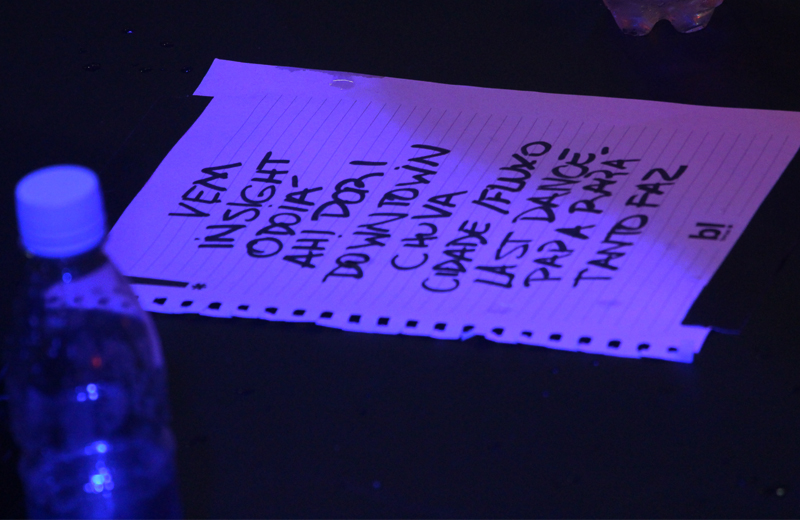 VEM
INSIGHT
ODOIÁ
AHI DORI
DOWNTOWN
CHUVA
CIDADE /FLUXO
LAST DANCE
PAPARAPA
TANTO FAZ
b!
*